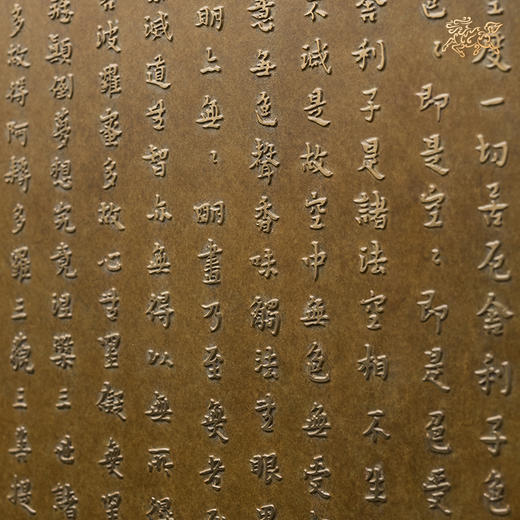 空度一切苦厄舍利子色
色〻即是空〻即是色受
舍利子是諸法空相不生
不減是故空中無色無受
意無色聲香味觸法無眼界
明亦無〻明盡乃至無老死
滅道無智亦無得以無所得
若波羅蜜多故心無罣礙無罣
顛倒夢想究竟涅槃三世諸
多故得阿耨多羅三藐三菩提